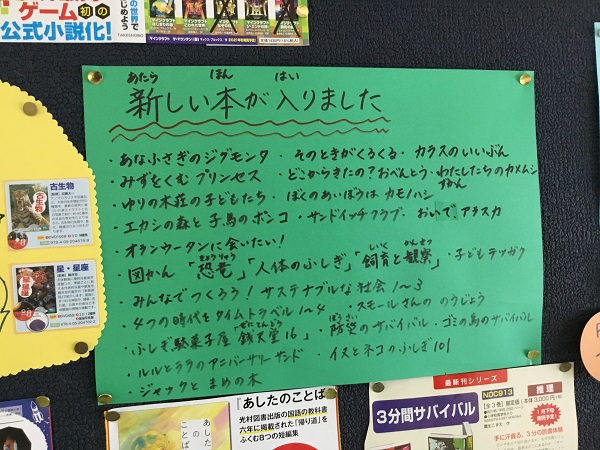 ゲーム初の
公式小説化!
の世界で
じめよう
TAKESHOBO
新しい本が入りました
あたら ほん はい
・あなふさぎのジグモンタ ・そのときがくるくる・カラスのいいぶん
・みずをくむプリンセス ・どこからきたの?おべんとう・わたしたちのカメムシずかん
・ゆりの木荘の子どもたち ・ぼくのあいぼうはカモノハシ
・エカシの森と子馬のポンコ ・サンドイッチクラブ・おいで、アラスカ
・オランウータンに会いたい!
・図かん「恐竜」「人体のふしぎ」「飼育と観察」・子どもテツガク
きょうりゅう しいく かんさつ
・みんなでつくろう!サステナブルな社会1〜3
・4つの時代をタイムトラベル1〜4 ・スモールさんののうじょう
・ふしぎ駄菓子屋「銭天堂16」・防災のサバイバル・ゴミの島のサバイバル
ぜにてんどう ぼうさい
・ルルとララのアニバーサリーサンド ・イヌとネコのふしぎ101
・ジャックとまめの木
古生物
古生物
星・星座
星・星座
「あしたのことば」
光村図書出版の国語の教科書
六年に掲載された「帰り道」を
ふくむ8つの短編集
あしたの
ことば
最新刊シリーズ
3分間サバイバル
NDC913
推理
[全3巻]
3,000円
1月下旬